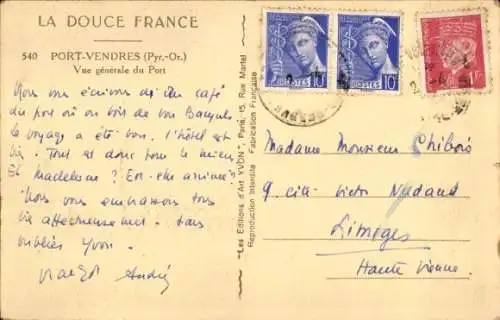 LA DOUCE FRANCE
540 PORT-VENDRES (Pyr.-Or.)
Vue générale du Port
Nous vous écrivons du café
du port où on boit du bon Banyuls
Le voyage a été bon. l'hôtel est
bien. Tout est donc pour le mieux
Et Madeleine ? Est-elle arrivée ?
Nous vous embrassons tous
bien affectueusement. sans
oublier Yvon.
Margot André
"Les Editions d'Art YVON", Paris, 15, Rue Martel
Reproduction Interdite Fabrication Française
10c POSTES 10c
POSTES
Madame Monsieur Chibois
9 cité Victor Nadaud
Limoges
Haute Vienne.